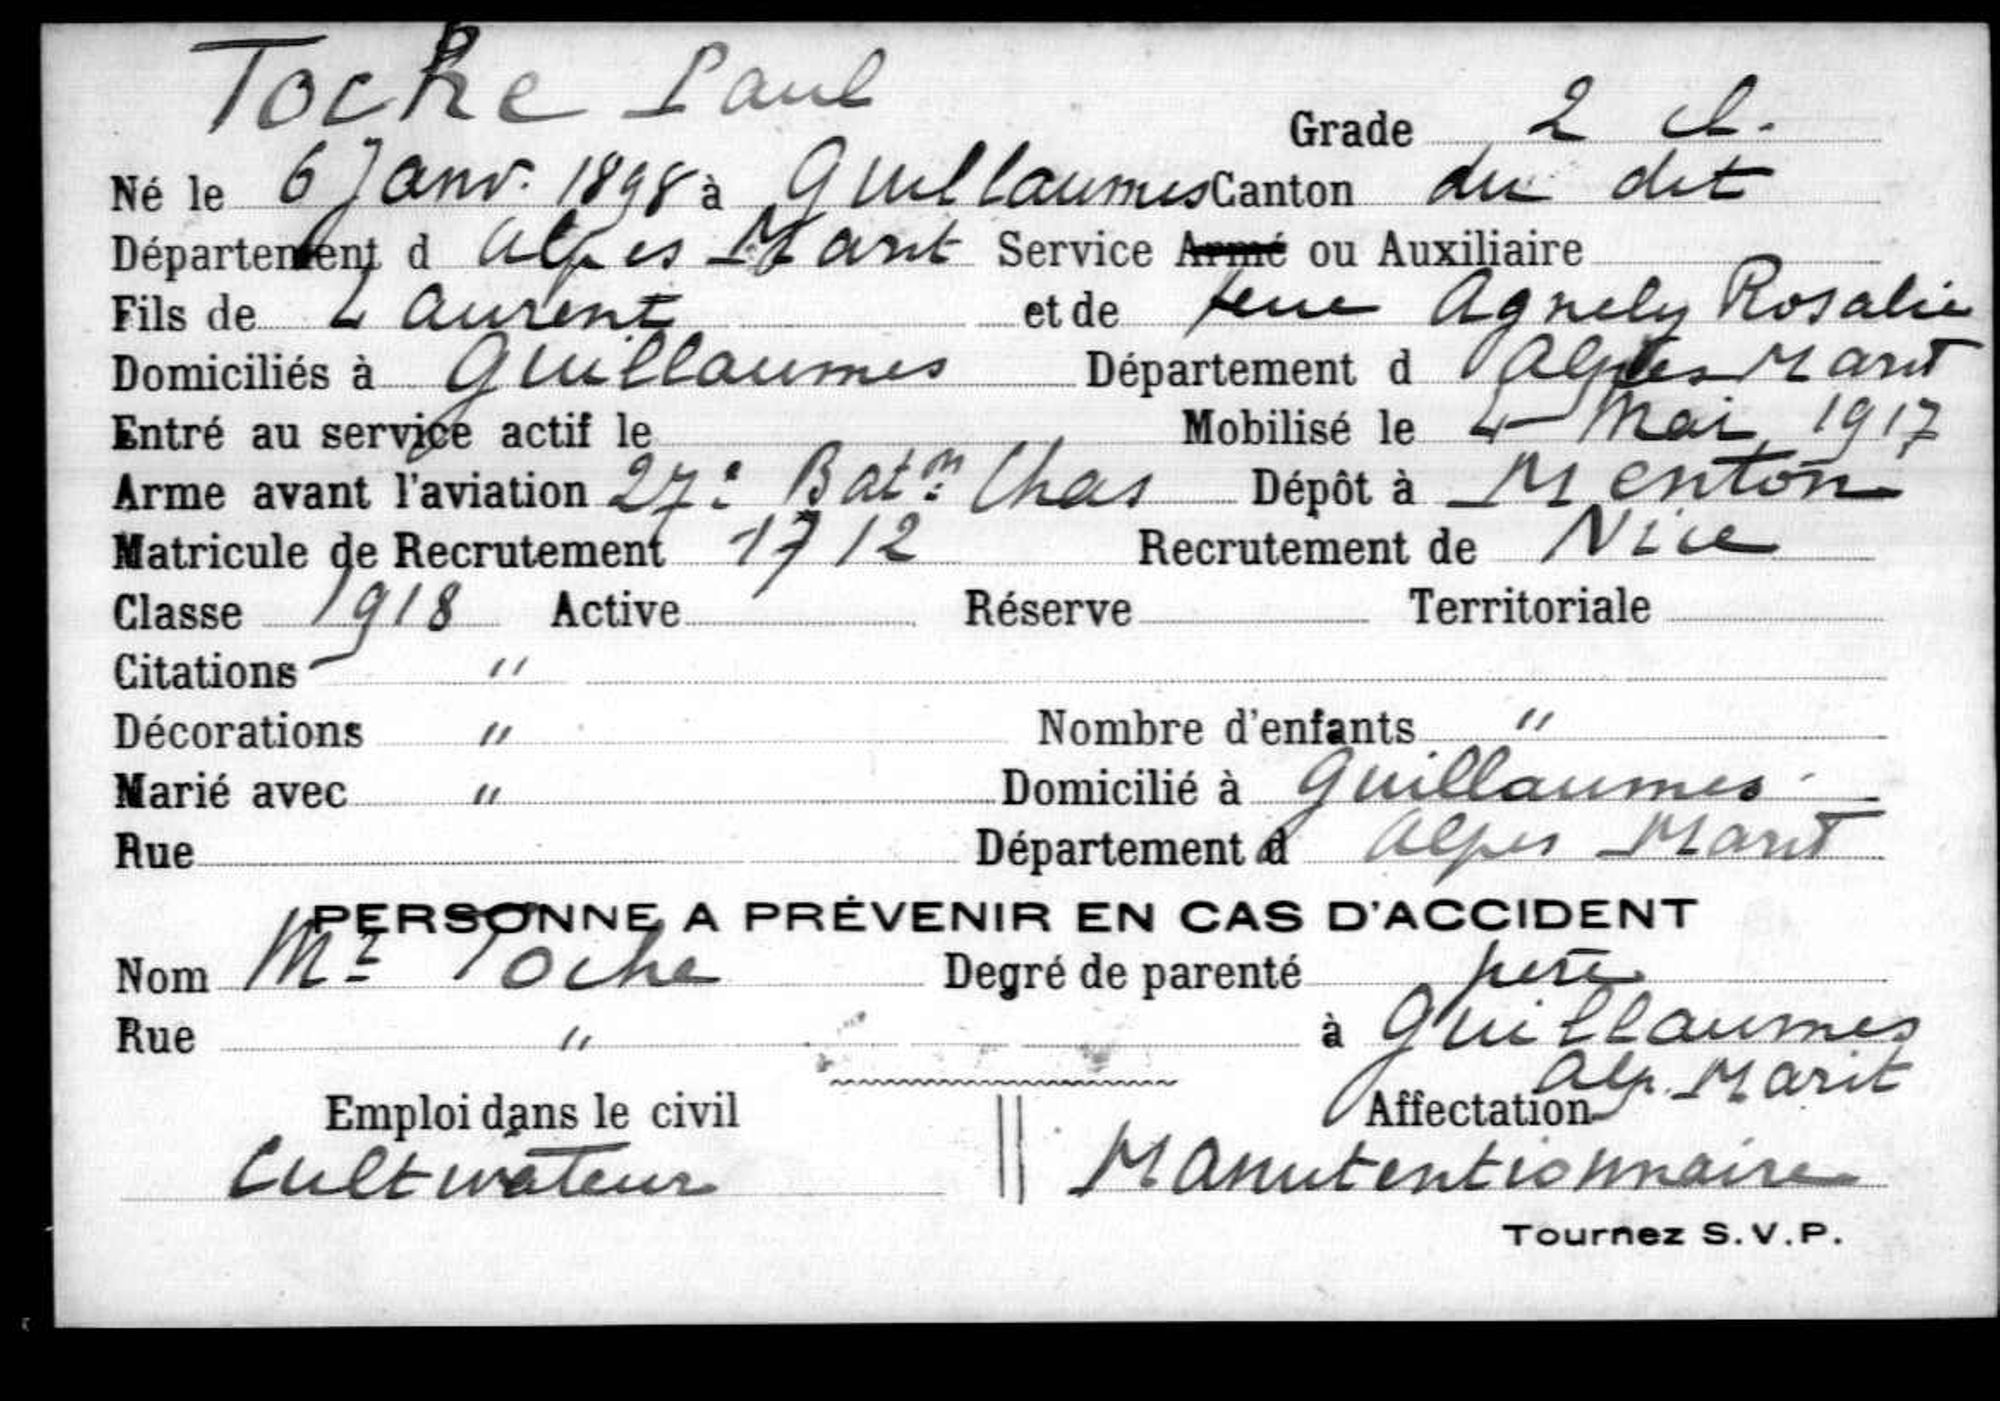 Toche Paul
Grade 2 cl.
Né le 6 Janv. 1898 à Guillaumes Canton du dit
Département d Alpes Marit Service Armé ou Auxiliaire
Fils de Laurent et de feue Agnely Rosalie
Domiciliés à Guillaumes Département d Alpes Marit
Entré au service actif le Mobilisé le 4 Mai 1917
Arme avant l'aviation 27e Batm Chas Dépôt à Menton
Matricule de Recrutement 1712 Recrutement de Nice
Classe 1918 Active Réserve Territoriale
Citations "
Décorations " Nombre d'enfants "
Marié avec " Domicilié à Guillaumes
Rue Département d Alpes Marit
PERSONNE A PRÉVENIR EN CAS D'ACCIDENT
Nom Mr Toche Degré de parenté père
Rue " à Guillaumes
Alp. Marit
Emploi dans le civil Affectation
Cultivateur Manutentionnaire
Tournez S.V.P.